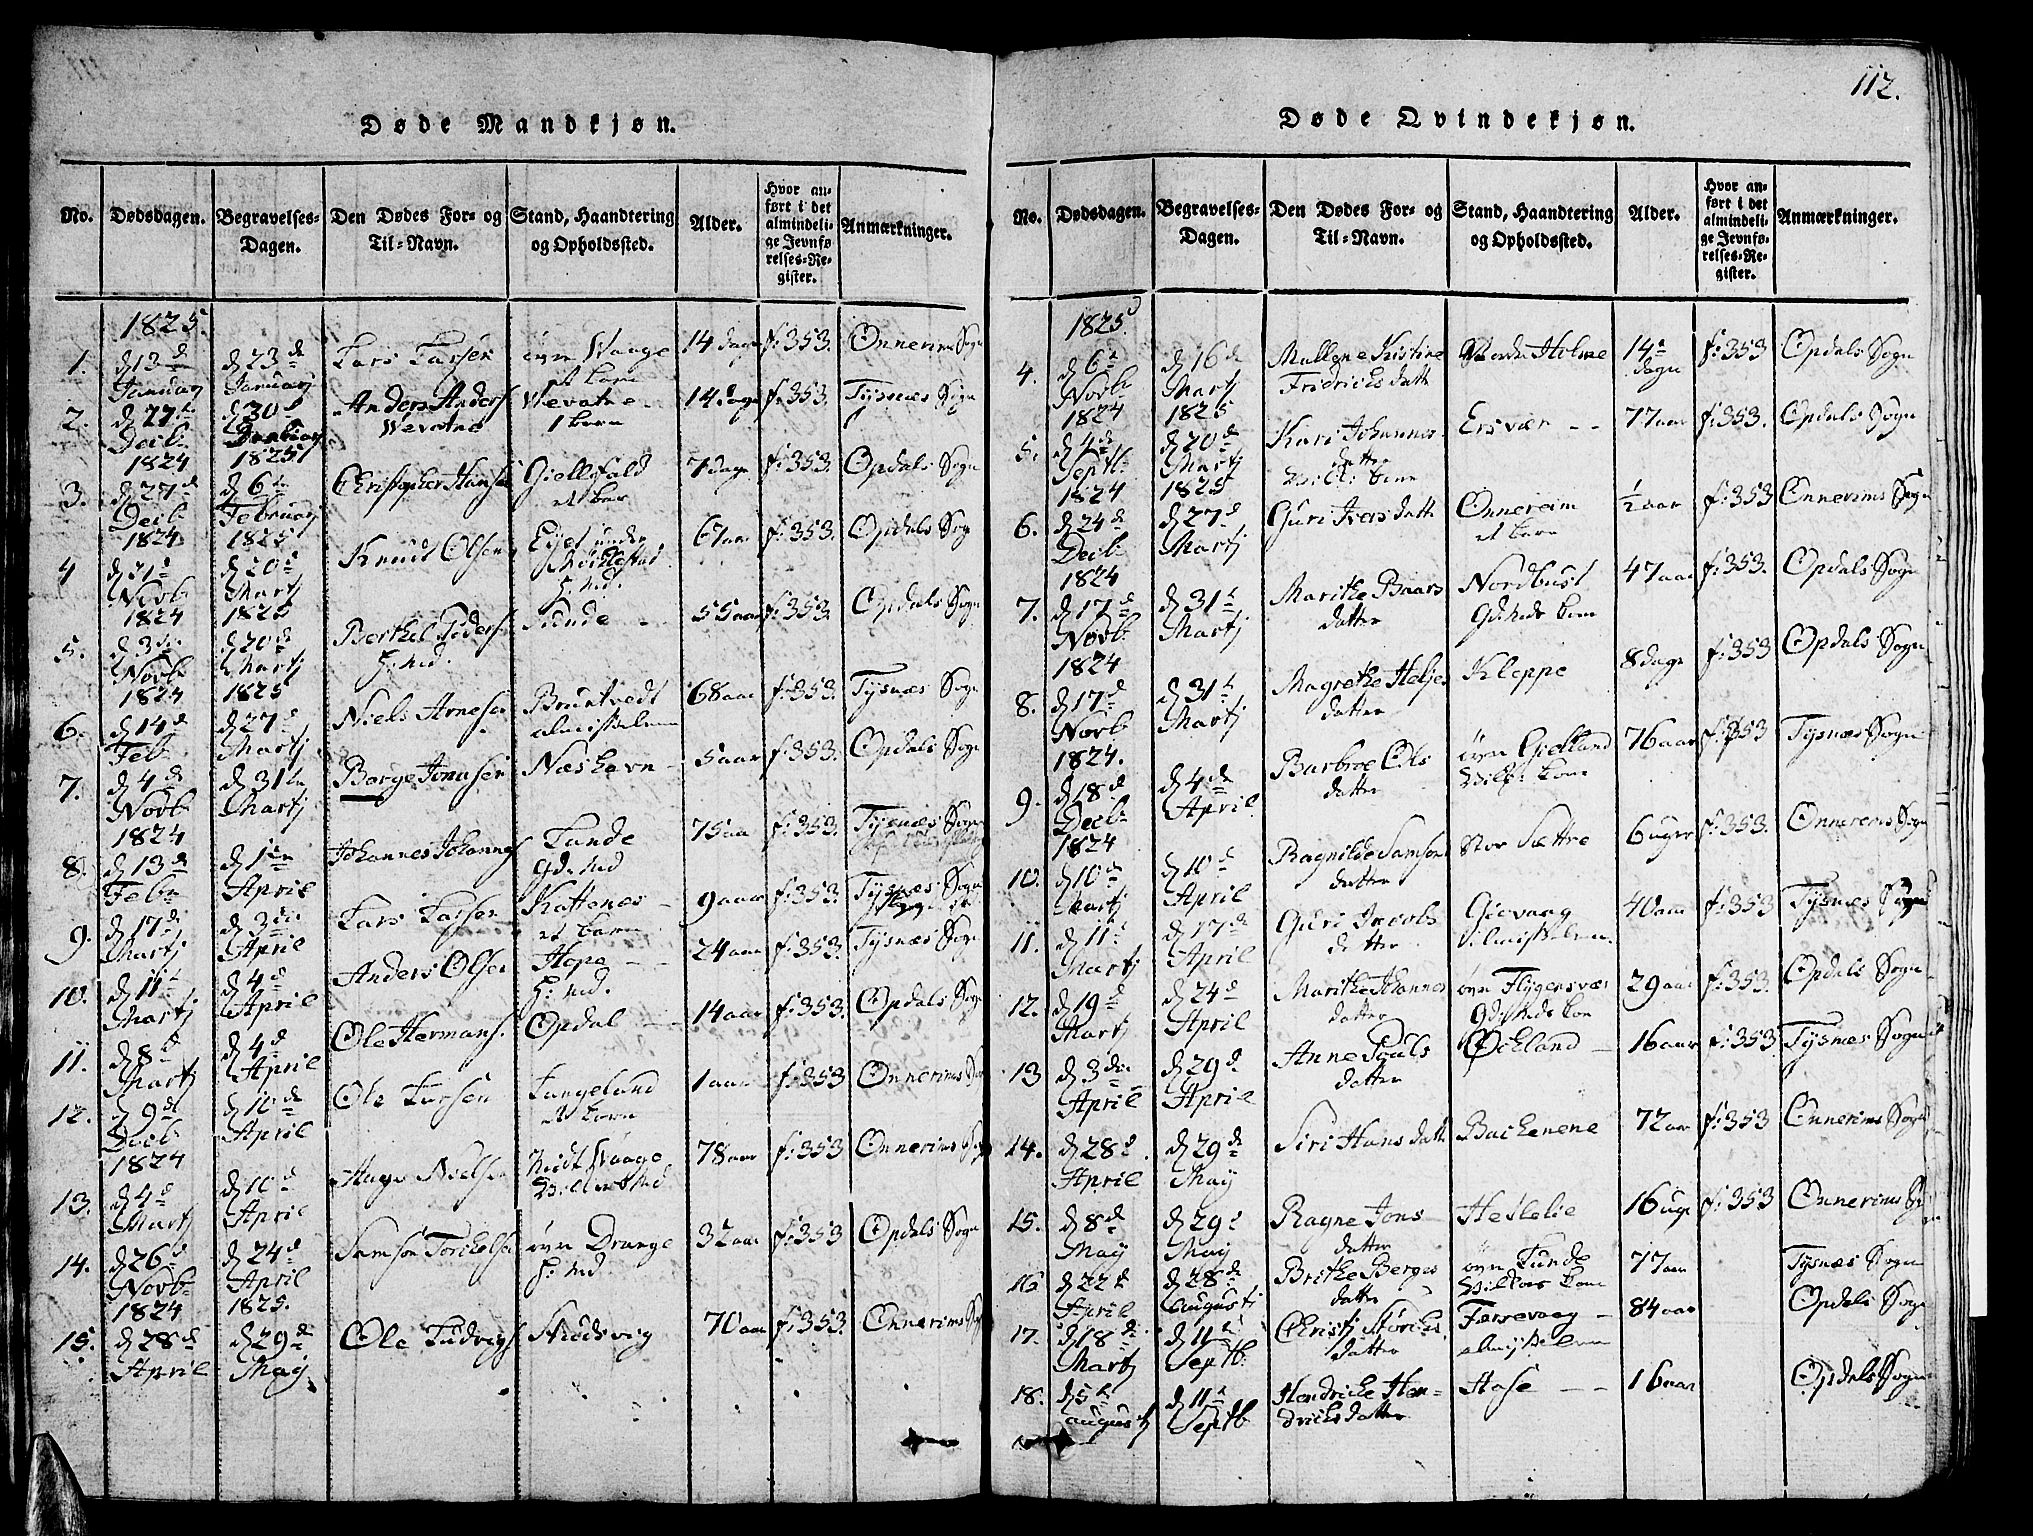 112.
Døde Mandkjøn.
No. Dødsdagen. Begravelses-Dagen. Den Dødes For- og Til-Navn. Stand, Haandtering og Opholdssted. Alder. Hvor anført i det almindelige Jevnførelses-Register. Anmærkninger.
1825.
1. d 13d Januarj d 23de Januarj Lars Larsen øvre Waage et barn 14 dage f: 353. Onnerims Sogn
2. d 27 Decb: 1824 d 30 1825 Anders Anders Wevatne Wevatne 1 barn 14 dage f: 353. Tysnæs Sogn
3. d 27d Decb 1824 d 6 Februarj 1825 Christopher Hansen Gjellefald et bar 7 dage f: 353. Opdals Sogn
4 d 21 Novb 1824 d 20d Martj 1825 Knudt Olsen Eyet under H. Md. 67 aar f: 353. Opdals Sog
5. d 3die Novb 1824 d 20d Martj 1825 Berthel Peders H. Md. Sunde 55 aar f: 353. Opdals Sogn
6. d 14d Feb d 27d Martj Niels Arnesen Bruntvedt almisselem 68 aar f: 353. Tysnæs Sogn
7. d 4de Novb 1824 d 31te Martj Børge Jonnsen Næshavn 5 aar f: 353. Opdals Sogn
8. d 13d Febr d 1ste April Johannes Johannes Lunde Gd: Md 75 aar f: 353. Tysnæs Sogn
9. d 17d Martj d 3die April Lars Larsen Kattenes et barn 9 aar f: 353. Tysnæs Sogn
10. d 11t Martj d 4d April Anders Olsen Hope H: Md. 24 aar f: 353. Tysnæs Sogn
11. d 8d Martj d 4d April Ole Hermans. Opdal 14 aar f: 353. Opdals Sogn
12. d 9de Decb 1824 d 10de April Ole Larsen Langeland et barn 1 aar f: 353 Onnerims Sogn
13. d 4d Martj d 10d April Aage Nielsen Midt Waage 78 aar f: 353 Onnerims Sogn
14. d 26d Novb 1824 d 24d April 1825. Samson Torkelsen øvre Drange H: Md. 32 aar f: 353 Opdals Sogn
15. d 28d April d 29d May Ole Ludvigs Skudsvig 70 aar f: 353. Onnerims Sogn
Døde Qvindekjøn.
No. Dødsdagen. Begravelses-Dagen. Den Dødes For- og Til-Navn. Stand, Haandtering og Opholdssted. Alder. Hvor anført i det almindelige Jevnførelses-Register. Anmærkninger.
1825
4. d 6 Novb 1824 d 16d Martj 1825 Mallene Kristine Fridrichs datt Holme 14 dage f: 353 Opdals Sogn
5. d 4de Septb 1824 d 20d Martj 1825 Kari Johannes datter Ersvær 77 aar f: 353. Opdals Sogn
6. d 24d Decb 1824 d 27d Martj Guri Ivers datter Onnereim et barn ½ aar f: 353 Onnerims Sogn
7. d 17d Novb 1824 d 31t Martj Marithe Baars datter Nordhust Gd: Mds kone 47 aar f: 353. Opdals Sogn
8. d 17d Novb 1824. d 31t Martj Magrethe Heljes datter Kleppe 8 dage f: 353 Opdals Sogn
9. d 18d Decb 1824 d 4de April Barbroe Ols datter øvre Gjelland 76 aar f: 353 Tysnæs Sogn
10. d 10d Martj d 10d April Ragnilde Samsons datter Stor Sættre 6 uger f: 353. Onnerims Sogn
11. d 11t Martj d 17d April Guri Jacobs datter Giøvaag almisselem. 40 aar f: 353 Tysnæs Sogn
12. d 19d Martj d 24d April Marithe Johannes datter øvre Flygensvær Gd: Mds kon 29 aar f: 353. Opdals Sogn
13 d 3die April d 29d April Anne Pouls datter Økland 16 aar f: 353. Tysnæs Sogn
14. d 28d April d 29de May Siri Hans datt Backenene 72 aar f: 353 Onnerims Sogn
15. d 8d May d 29d May Ragne Jons datter Heslelie 16 uge f: 353 Onnerims Sogn
16 d 22d April d 28d augustj Brithe Berges datter øvre Lunde 77 aar Tysnæs Sogn
17. d 18d Martj d 11t Septb: Christj Størks datter Færøevaag almisselem 84 aar Opdals Sogn
18. d 5t augustj d 11t Septb Hendricke Hendricksdatter Hose 16 aar Opdals Sogn